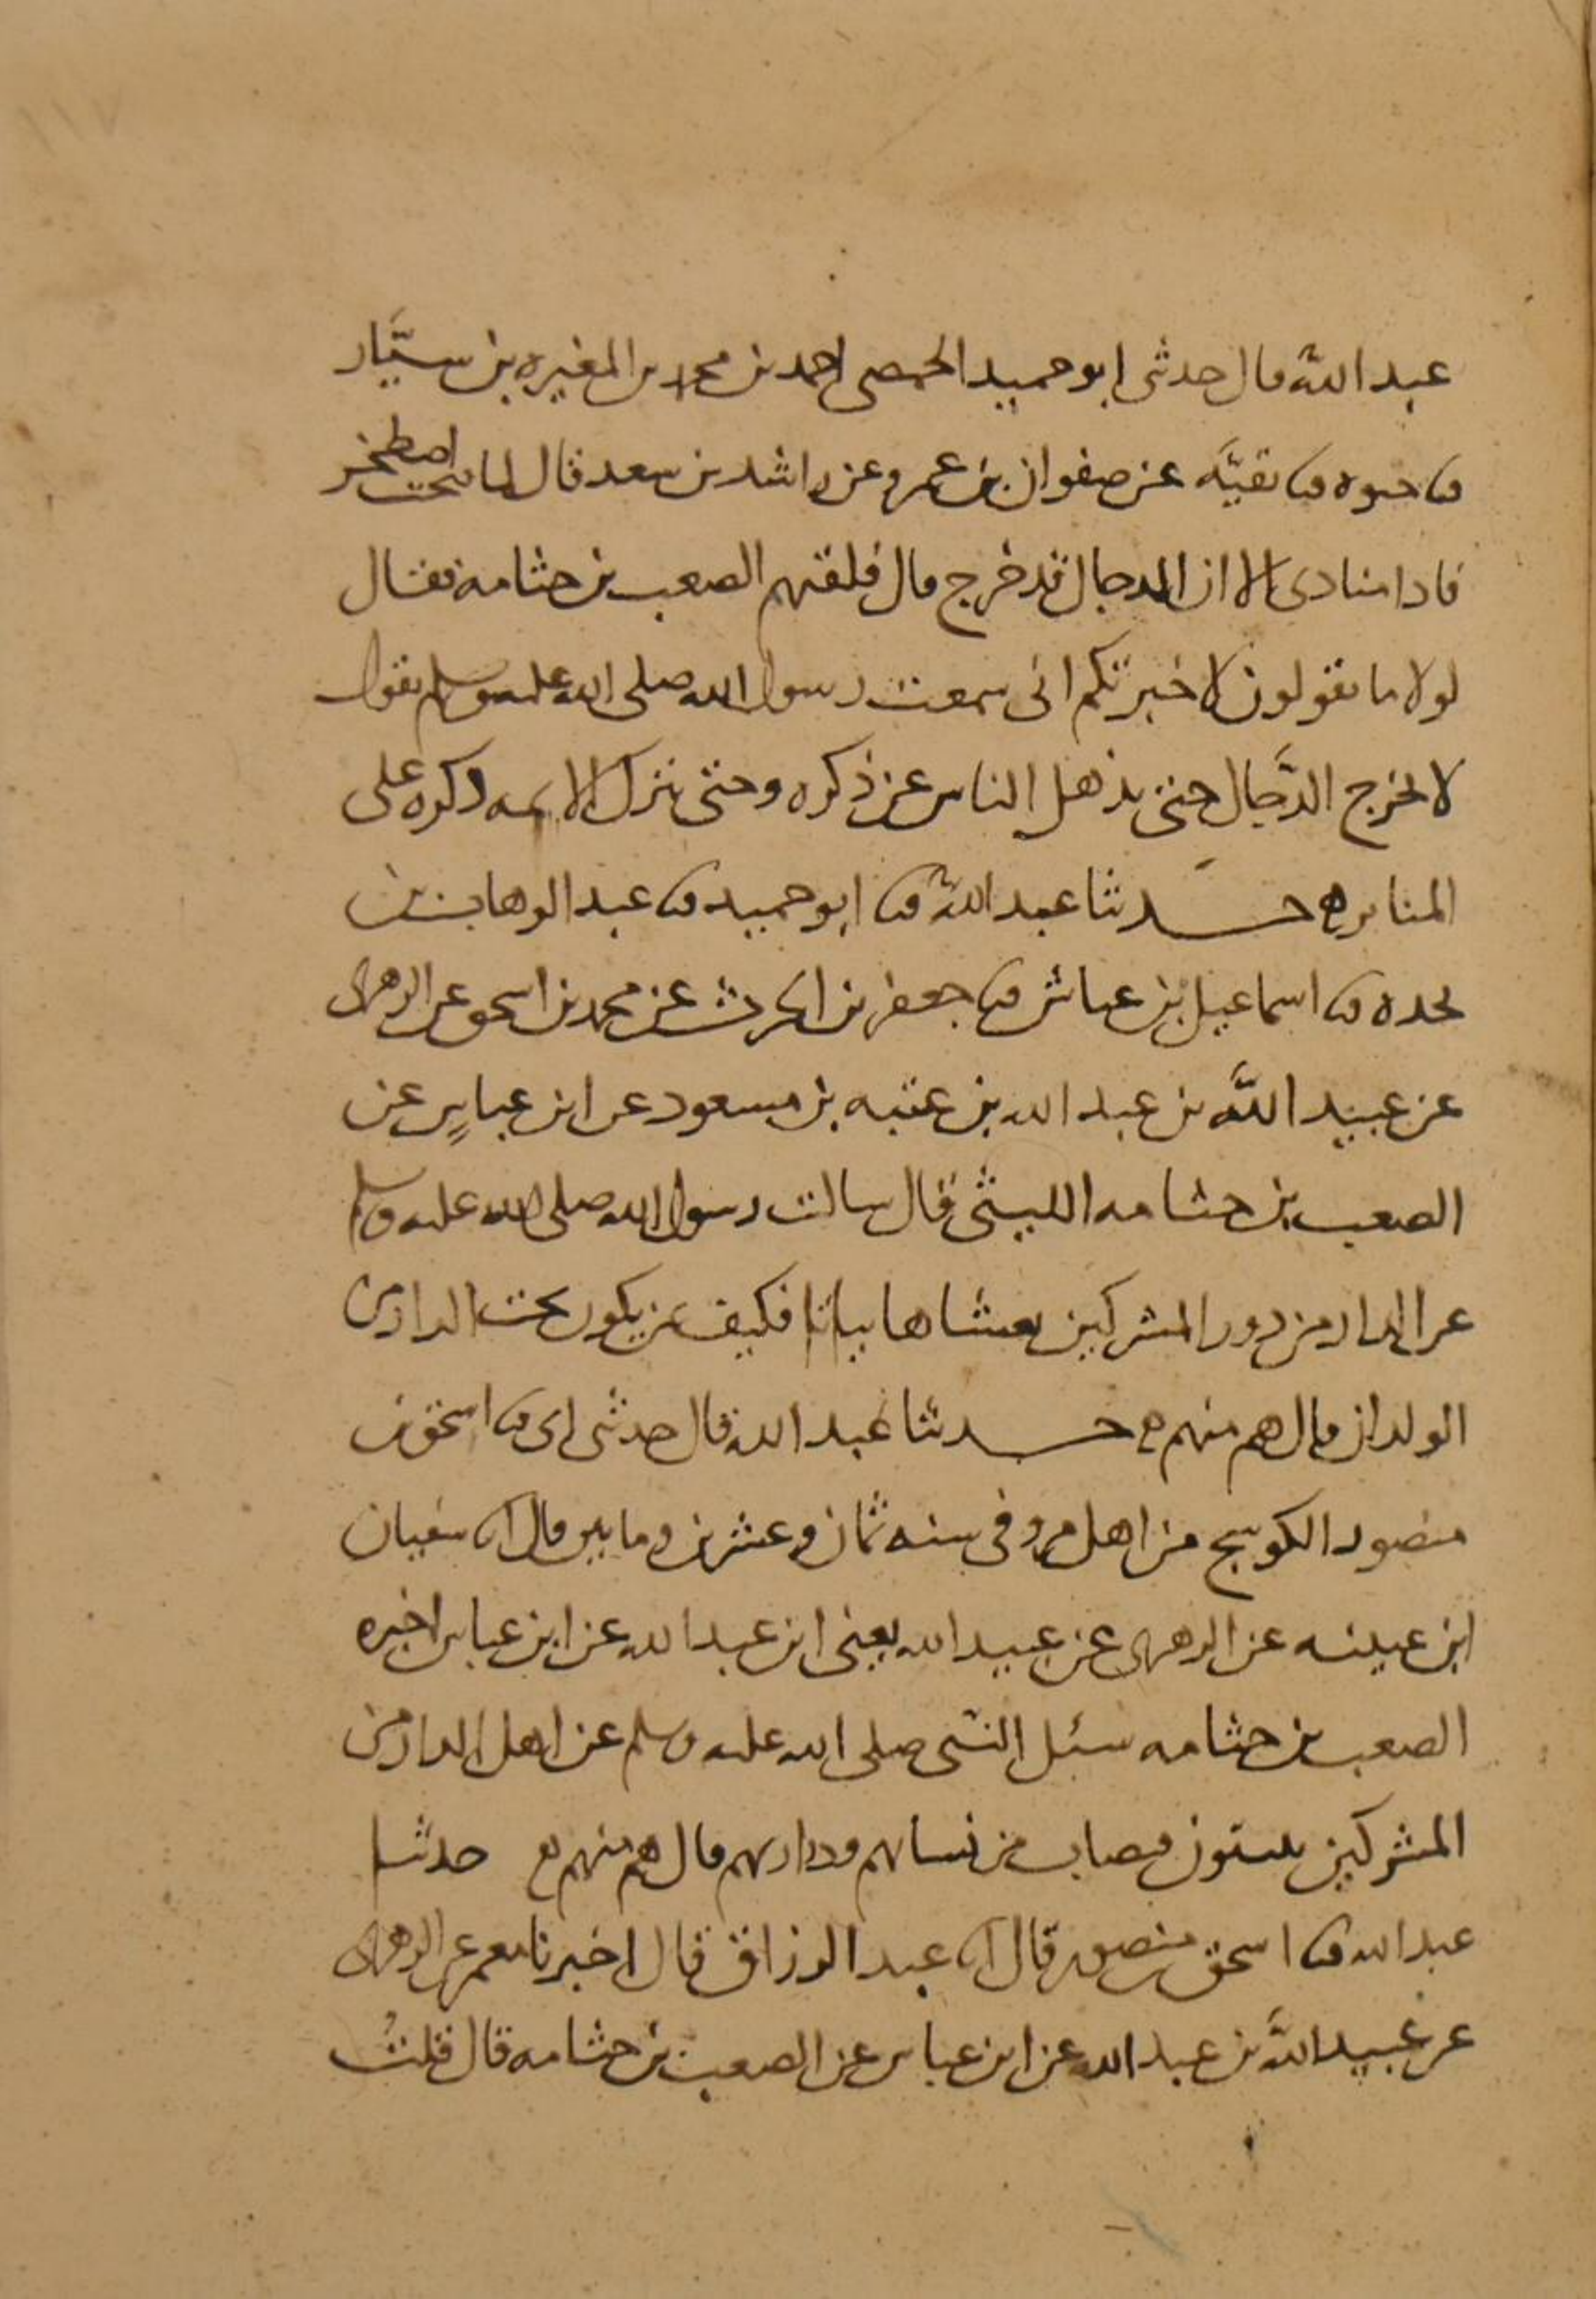 عبد الله قال حدثنى ابو حميد الحمصى احمد بن محمد بن المغيره بن سيَّار
ثنا حيوه ثنا بقيَّه عن صفوان بن عمرو عن راشد بن سعد قال لما فتحت اصطخر
فاذا منادى الا ان الدجال قد خرج قال فلقيهم الصعب بن جثامه فقال
لولا ما تقولون لاخبرتكم انى سمعت رسول الله صلى الله عليه وسلم يقول
لا يخرج الدَّجال حتى يذهل الناس عن ذكره وحتى تترك الايمه ذكره على
المنابر ه حدثنا عبد الله ثنا ابو حميد ثنا عبد الوهاب بن
نجده ثنا اسماعيل بن عياش ثنا جعفر بن الحرث عن محمد بن اسحق عن الزهرى
عن عبيد اللَّه بن عبد الله بن عتبه بن مسعود عن ابن عباسٍ عن
الصعب بن جثامه الليثى قال سالت رسول الله صلى الله عليه وسلم
عن الدار من دور المشركين نغشاها بياتا فكيف بمن يكون تحت الدار من
الولدان قال هم منهم ه حدثنا عبد الله قال حدثنى ابى ثنا اسحق بن
منصور الكوسج من اهل مرو فى سنه ثمان وعشرين ومايتين قال انا سفيان
ابن عيينه عن الزهرى عن عبيد الله يعنى ابن عبد الله عن ابن عباس اخبره
الصعب بن جثامه سئل النبى صلى الله عليه وسلم عن اهل الدار من
المشركين يبيتون فيصاب من نسايهم وذراريهم قال هم منهم ه حدثنا
عبد الله ثنا اسحق بن منصور قال انا عبد الرزاق قال اخبرنا معمر عن الزهرى
عن عبيد اللَّه بن عبد الله عن ابن عباس عن الصعب بن جثامه قال قلتُ